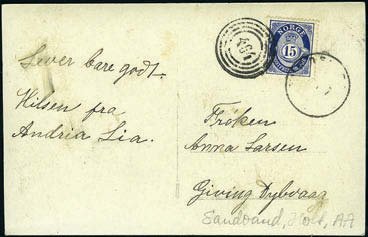 Lever bare godt.
Hilsen fra
Andria Lia.
NORGE
15
Frøken
Anna Larsen
Giving Dybvaag
Sandvand, Holt, AA